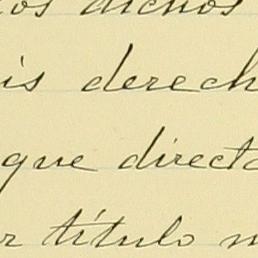 los dichos
is derech
que directa
r título n